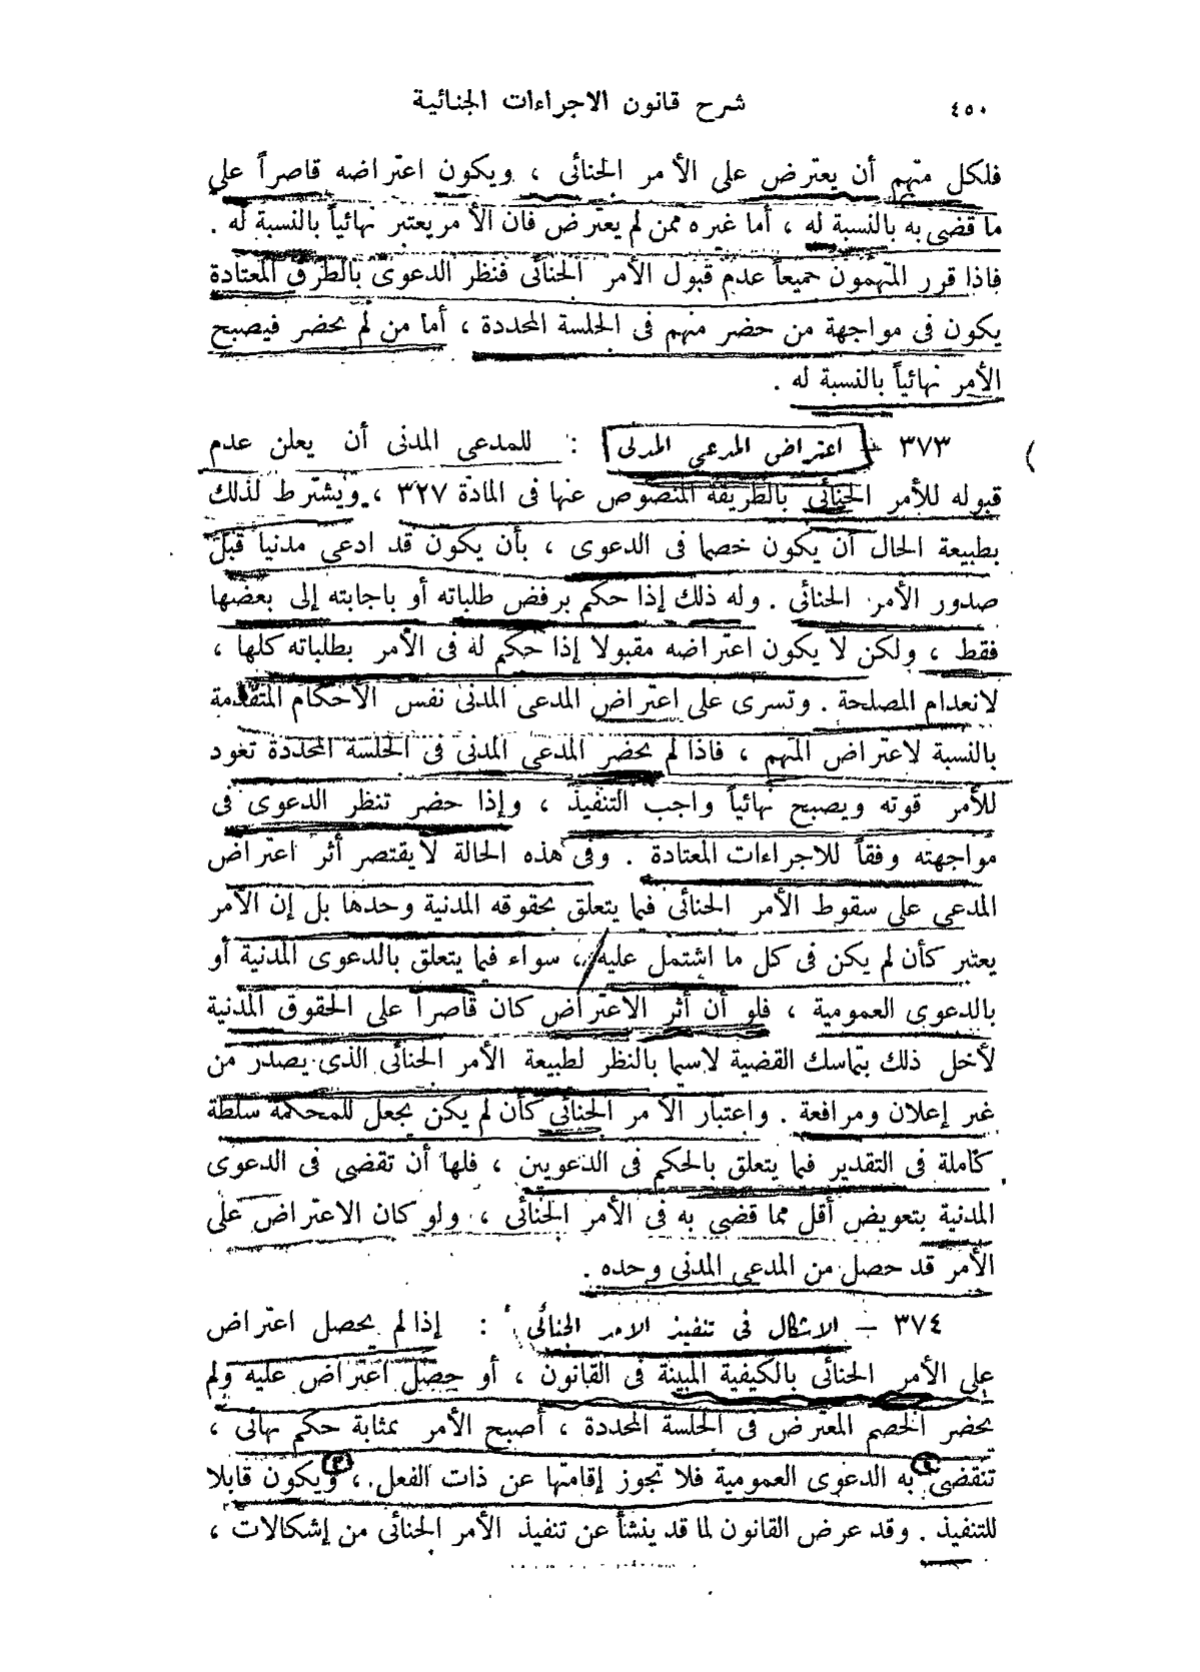 ٤٥٠
شرح قانون الاجراءات الجنائية
فلكل متهم أن يعترض على الأمر الجنائى ، ويكون اعتراضه قاصراً على
ما قضى به بالنسبة له ، أما غيره ممن لم يعترض فان الأمر يعتبر نهائياً بالنسبة له .
فاذا قرر المتهمون جميعاً عدم قبول الأمر الجنائى فنظر الدعوى بالطرق المعتادة
يكون فى مواجهة من حضر منهم فى الجلسة المحددة ، أما من لم يحضر فيصبح
الأمر نهائياً بالنسبة له .
٣٧٣ – اعتراض المدعى المدنى : للمدعى المدنى أن يعلن عدم
قبوله للأمر الجنائى بالطريقة المنصوص عنها فى المادة ٣٢٧ ، ويشترط لذلك
بطبيعة الحال أن يكون خصما فى الدعوى ، بأن يكون قد ادعى مدنيا قبل
صدور الأمر الجنائى . وله ذلك إذا حكم برفض طلباته أو باجابته إلى بعضها
فقط ، ولكن لا يكون اعتراضه مقبولا إذا حكم له فى الأمر بطلباته كلها ،
لانعدام المصلحة . وتسرى على اعتراض المدعى المدنى نفس الأحكام المتقدمة
بالنسبة لاعتراض المتهم ، فاذا لم يحضر المدعى المدنى فى الجلسة المحددة تعود
للأمر قوته ويصبح نهائياً واجب التنفيذ ، وإذا حضر تنظر الدعوى فى
مواجهته وفقاً للاجراءات المعتادة . وفى هذه الحالة لا يقتصر أثر اعتراض
المدعى على سقوط الأمر الجنائى فيما يتعلق بحقوقه المدنية وحدها بل إن الأمر
يعتبر كأن لم يكن فى كل ما اشتمل عليه ، سواء فيما يتعلق بالدعوى المدنية أو
بالدعوى العمومية ، فلو أن أثر الاعتراض كان قاصراً على الحقوق المدنية
لأخل ذلك بتماسك القضية لاسيما بالنظر لطبيعة الأمر الجنائى الذى يصدر من
غير إعلان ومرافعة . واعتبار الأمر الجنائى كأن لم يكن يجعل للمحكمة سلطة
كاملة فى التقدير فيما يتعلق بالحكم فى الدعويين ، فلها أن تقضى فى الدعوى
المدنية بتعويض أقل مما قضى به فى الأمر الجنائى ، ولو كان الاعتراض على
الأمر قد حصل من المدعى المدنى وحده .
٣٧٤ – الاشكال فى تنفيذ الامر الجنائى : إذا لم يحصل اعتراض
على الأمر الجنائى بالكيفية المبينة فى القانون ، أو حصل اعتراض عليه ولم
يحضر الخصم المعترض فى الجلسة المحددة ، أصبح الأمر بمثابة حكم نهائى ،
تنقضى به الدعوى العمومية فلا تجوز إقامتها عن ذات الفعل ، ويكون قابلا
للتنفيذ . وقد عرض القانون لما قد ينشأ عن تنفيذ الأمر الجنائى من إشكالات ،